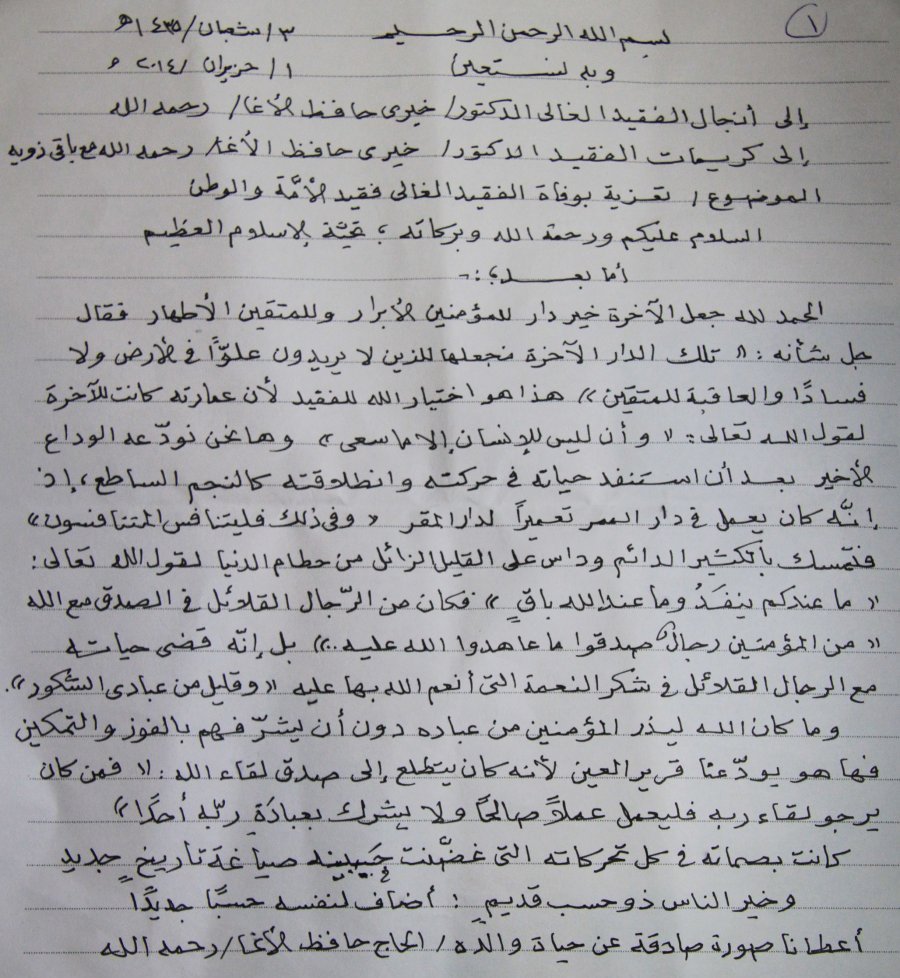 ١
بسم الله الرحمن الرحيم ٣/شعبان/١٤٣٥هـ
وبه نستعين ١/حزيران/٢٠١٤م
إلى أنجال الفقيد الغالى الدكتور/ خيرى حافظ الأغا/ رحمه الله
إلى كريمات الفقيد الدكتور/ خيرى حافظ الأغا/ رحمه الله مع باقى ذويه
الموضوع/ تعزية بوفاة الفقيد الغالى فقيد الأمَّة والوطن
السلام عليكم ورحمة الله وبركاته؛ تحيَّة الإسلام العظيم
أما بعد؛:-
الحمد لله جعل الآخرة خير دار للمؤمنين الأبرار وللمتقين الأطهار فقال
جل شأنه: "تلك الدار الآخرة نجعلها للذين لا يريدون علوّاً فى الأرض ولا
فسادًا والعاقبة للمتقين" هذا هو اختيار الله للفقيد لأن عمارته كانت للآخرة
لقول الله تعالى: "وأن ليس للإنسان إلا ما سعى" وها نحن نودّعه الوداع
الأخير بعد أن استنفد حياته فى حركته وانطلاقته كالنجم الساطع، إذ
إنَّه كان يعمل فى دار الممر تعميراً لدار المقر "وفى ذلك فليتنافس المتنافسون"
فتمسك بالكثير الدائم وداس على القليل الزائل من حطام الدنيا لقول الله تعالى:
"ما عندكم ينفَدُ وما عند الله باقٍ" فكان من الرّجال القلائل فى الصدق مع الله
"من المؤمنين رجالٌ صدقوا ما عاهدوا الله عليه.." بل إنّه قضى حياته
مع الرجال القلائل فى شكر النعمة التى أنعم الله بها عليه "وقليل من عبادى الشكور".
وما كان الله ليذر المؤمنين من عباده دون أن يشرّفهم بالفوز والتمكين
فها هو يودّعنا قرير العين لأنه كان يتطلع إلى صدق لقاء الله: "فمن كان
يرجو لقاء ربه فليعمل عملاً صالحًا ولا يشرك بعبادَةِ ربّه أحدًا"
كانت بصماته فى كل تحركاته التى غضَّنت جَبينه فى صياغة تاريخٍ جديد
وخير الناس ذو حسب قديمٍ : أضاف لنفسه حسبًا جديدًا
أعطانا صورة صادقة عن حياة والده/ الحاج حافظ الأغا/ رحمه الله